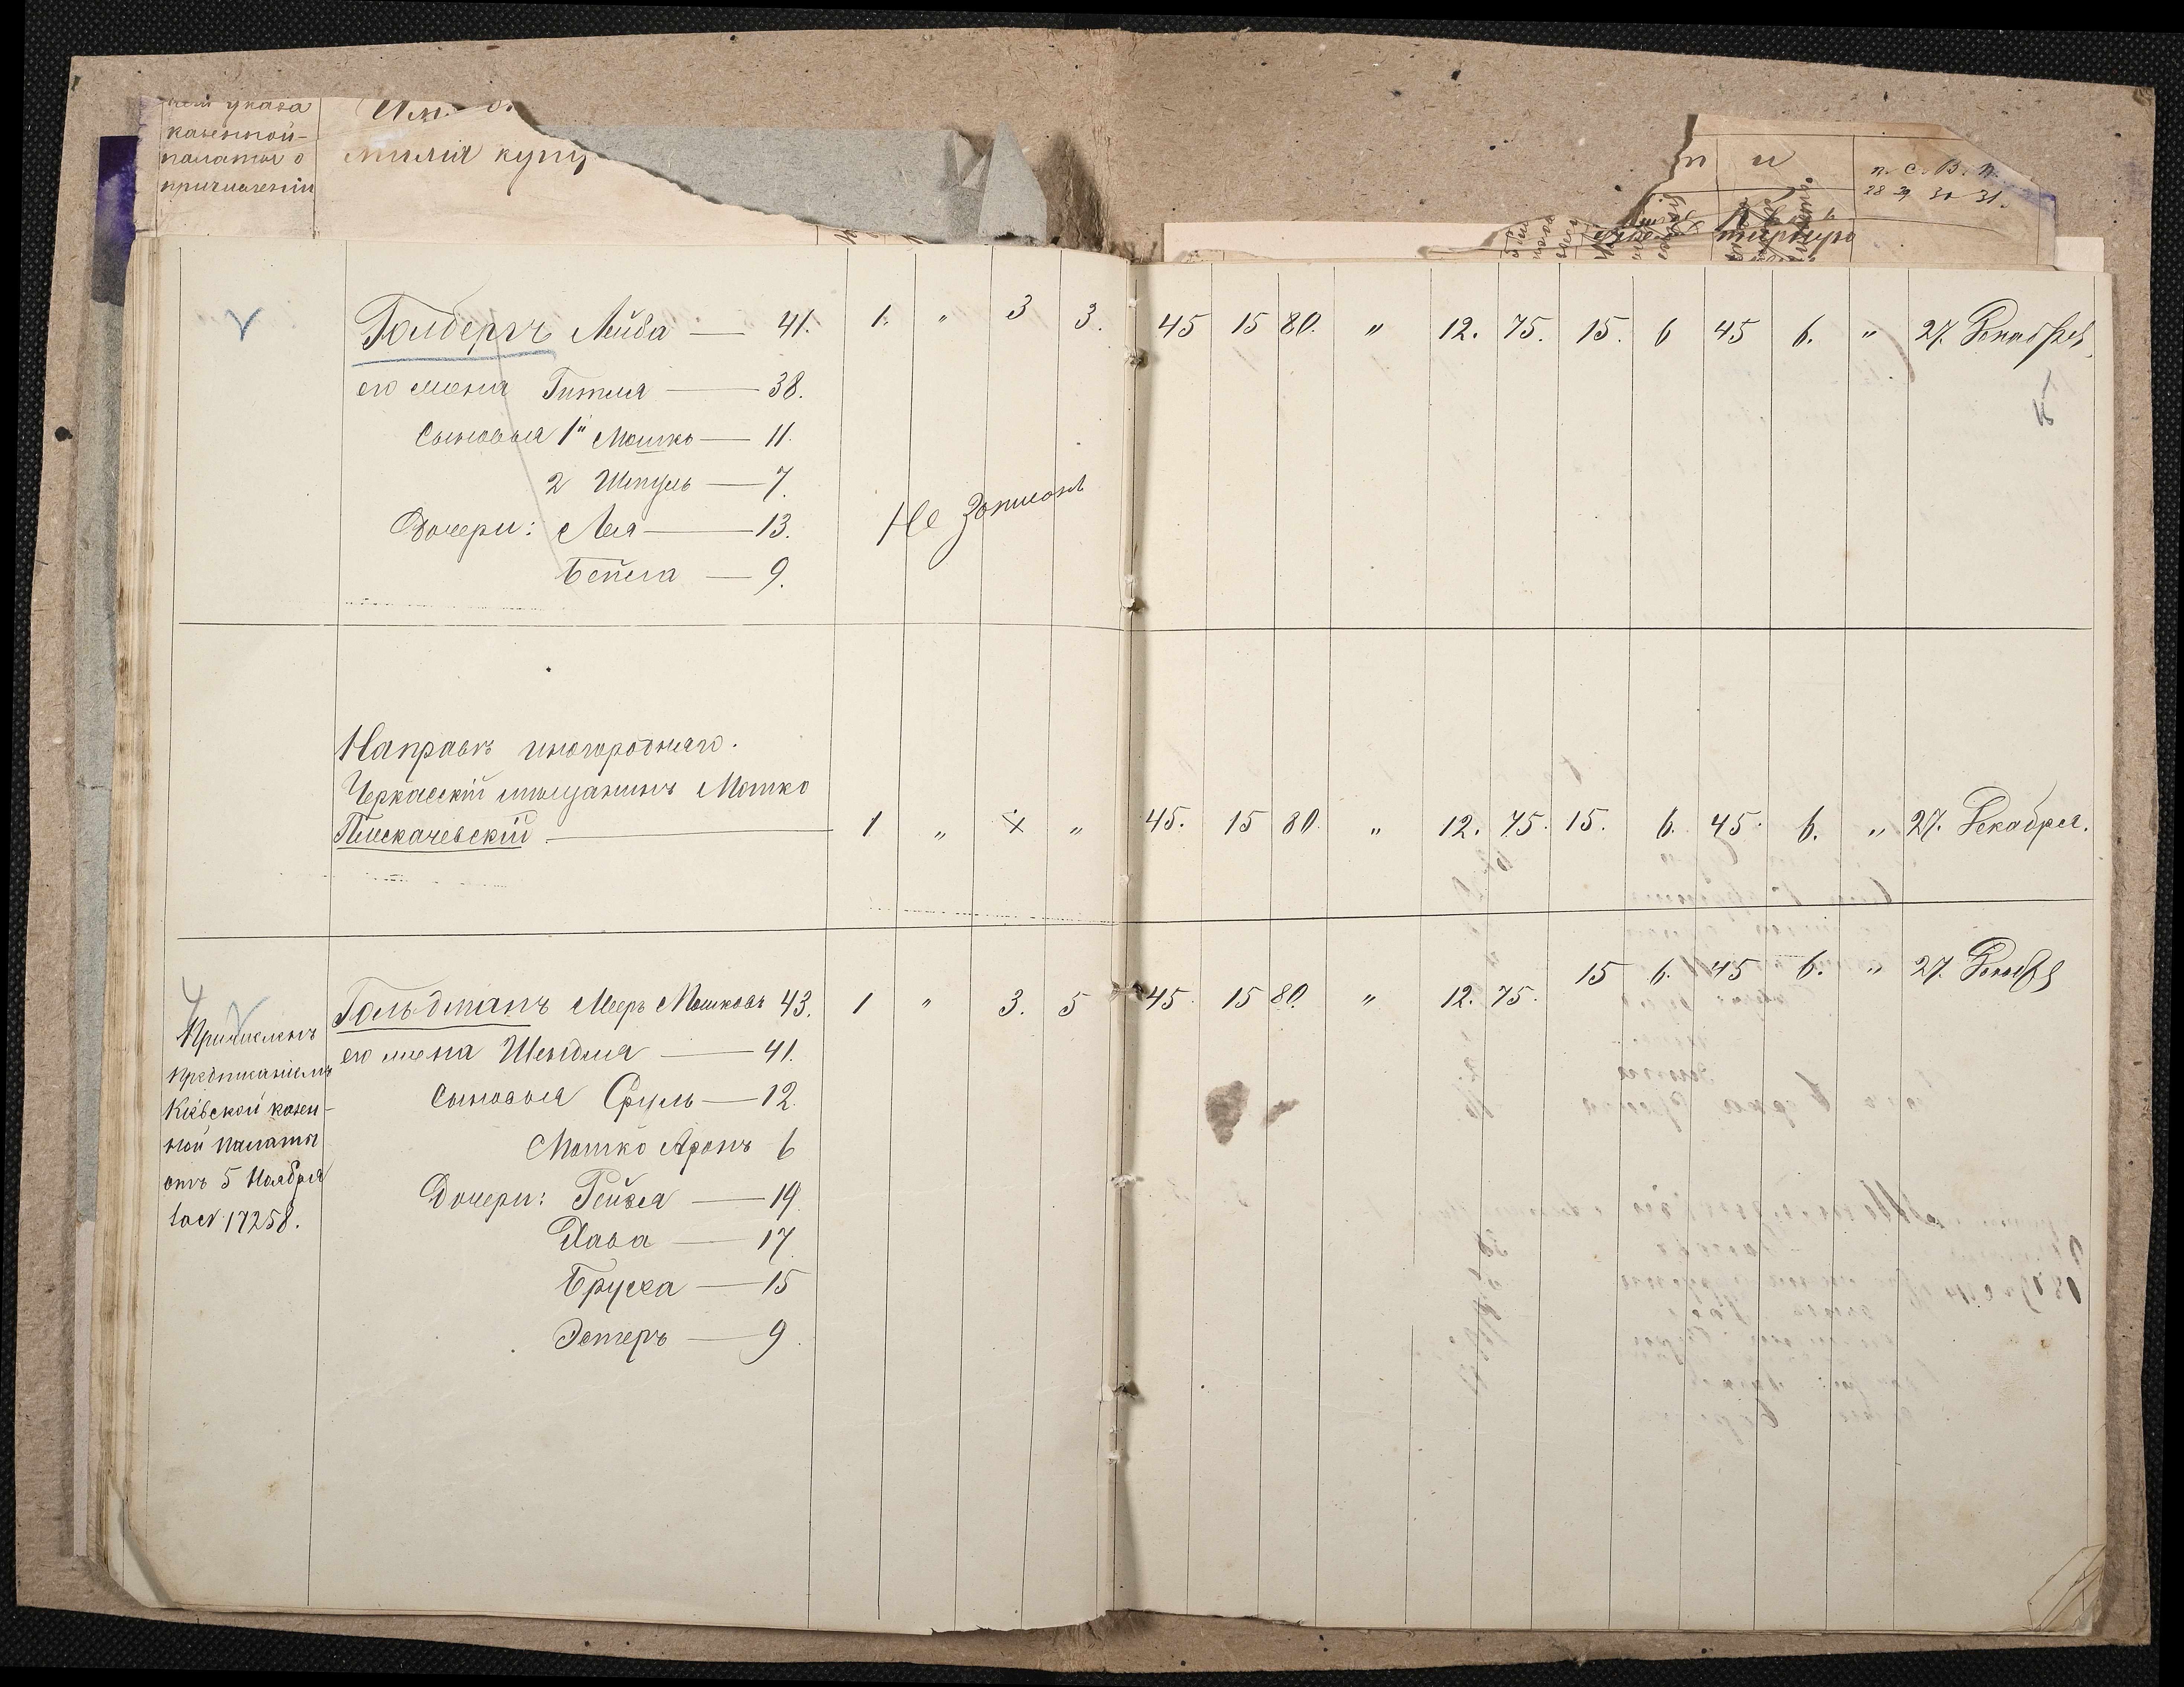 указа
казенной
палаты о
причислении
милія купц
п и
п. С. В. П.
28 29 30 31.
Голбергъ Лейба — 41. 1. „ 3 3. 45 15 80. „ 12. 75. 15. 6 45 6. „ 27. Декабря
его жена Гитля — 38.
Сыновья 1й Мошко — 11.
2 Шмуль — 7.
Дочери: Лея — 13.
Бейла — 9.
Не Записанъ
Направъ иногороднаго.
Черкасскій мѣщанинъ Мошко
Плискачевскій — 1 „ „ 45. 15 80. „ 12. 75. 15. 6. 45. 6. „ 27. Декабря.
Гольдманъ Мееръ Мошковъ 43. 1 „ 3. 5 45. 15 80. „ 12. 75. 15 6. 45 6. „ 27. Декабря
его жена Шендля — 41.
Сыновья Сруль — 12.
Мошко Аронъ 6
Дочери: Рейзя — 19.
Хава — 17
Бруха — 15
Эстеръ — 9.
Причисленъ
предписаніемъ
Кіевской казен-
ной Палаты
отъ 5 Ноября
17258.